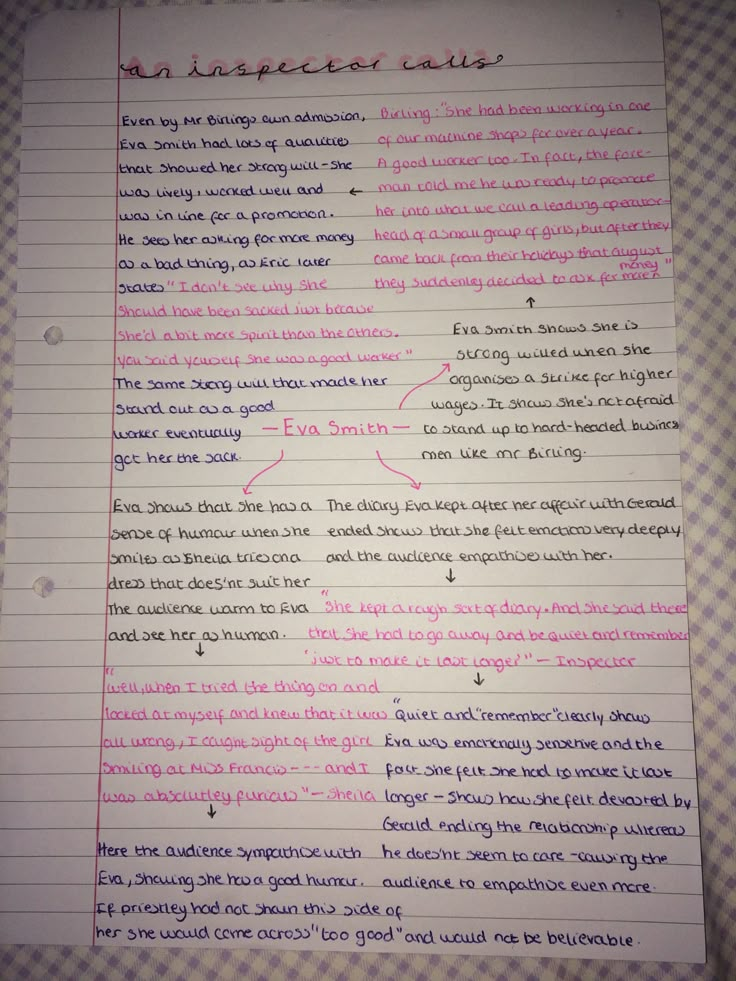 an inspector calls
Even by Mr Birlings own admission,
Eva Smith had lots of qualities
that showed her strong will - she
was lively, worked well and
was in line for a promotion.
He sees her asking for more money
as a bad thing, as Eric later
states "I don't see why she
should have been sacked just because
she'd a bit more spirit than the others.
you said yourself she was a good worker"
The same strong will that made her
stand out as a good
worker eventually
got her the sack.
Birling: "She had been working in one
of our machine shops for over a year.
A good worker too. In fact, the fore-
man told me he was ready to promote
her into what we call a leading operator -
head of a small group of girls, but after they
came back from their holidays that august
they suddenly decided to ask for more money"
Eva Smith shows she is
strong willed when she
organises a strike for higher
wages. It shows she's not afraid
to stand up to hard-headed business
men like mr Birling.
- Eva Smith -
Eva shows that she has a
sense of humour when she
smiles as Sheila tries on a
dress that does'nt suit her
The audience warm to Eva
and see her as human.
"well, when I tried the thing on and
looked at myself and knew that it was
all wrong, I caught sight of the girl
smiling at Miss Francis --- and I
was absolutley furious" - Sheila
Here the audience sympathise with
Eva, showing she has a good humour.
If priestley had not shown this side of
her she would come across "too good" and would not be believable.
The diary Eva kept after her affair with Gerald
ended shows that she felt emotions very deeply
and the audience empathise with her.
"She kept a rough sort of diary. And she said there
that she had to go away and be quiet and remember
'just to make it last longer'" - Inspector
"Quiet and "remember" clearly shows
Eva was emotionaly sensitive and the
fact she felt she had to make it last
longer - shows how she felt devasted by
Gerald ending the relationship whereas
he does'nt seem to care - causing the
audience to empathise even more.